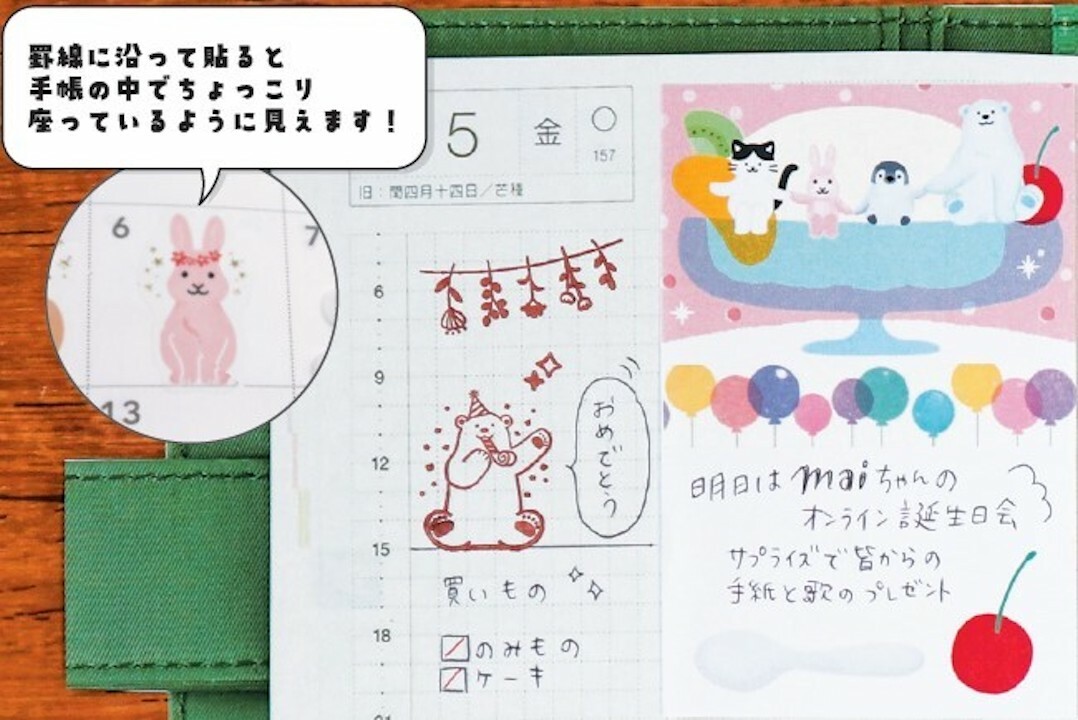 罫線に沿って貼ると
手帳の中でちょっこり
座っているように見えます！
6
7
13
5
金
157
旧：閏四月十四日／芒種
6
9
12
15
18
21
おめでとう
買いもの
のみもの
ケーキ
明日はmaiちゃんの
オンライン誕生日会
サプライズで皆からの
手紙と歌のプレゼント